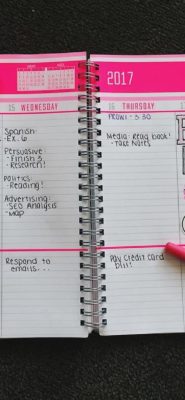 2017
15 WEDNESDAY
Spanish
-Ex. 6
Persuasive:
-Finish 3
-Research!
Politics:
-Reading!
Advertising:
-SEO Analysis
-Map
Respond to
emails...
16 THURSDAY
5:30
Media: Read book!
-Take Notes
Pay credit card
bill!